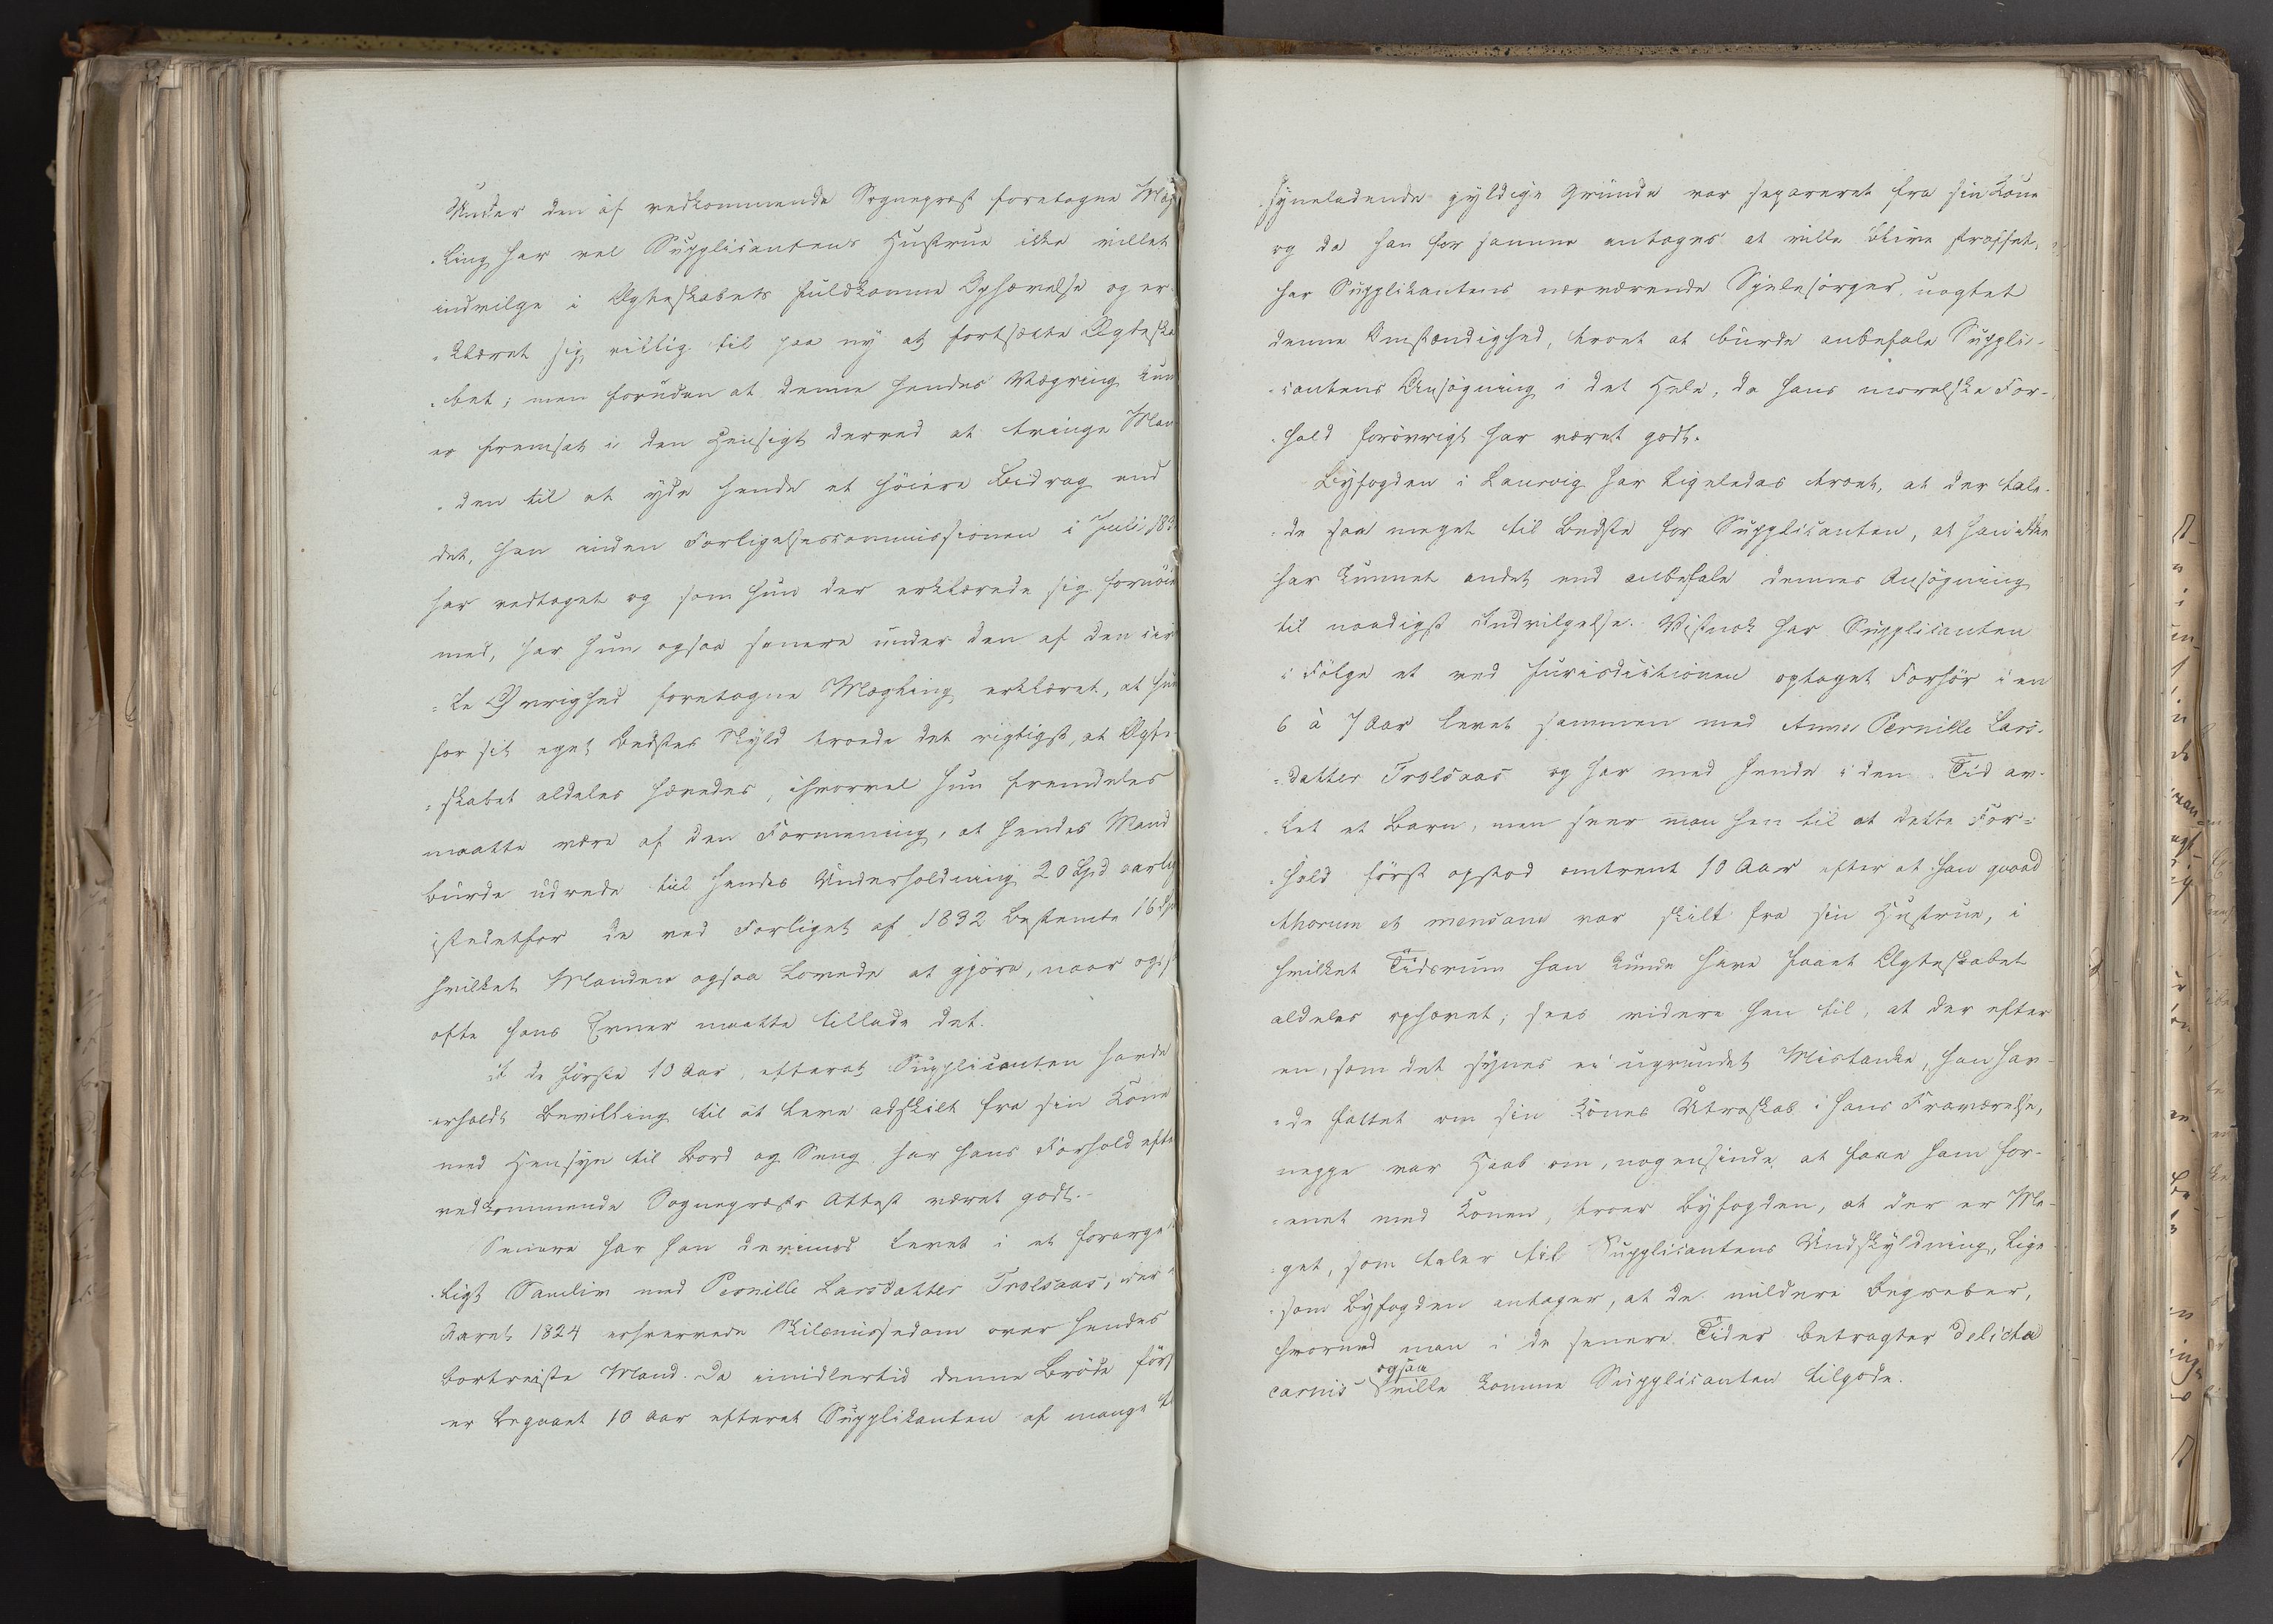 Under den af vedkommende Sognepræst foretagne Mæg
-ling har vel Supplicantens Hustrue ikke villet
indvilge i Ægteskabets fuldkomne Ophævelse og er-
-klæret sig villig til paa ny at fortsætte Ægteska
-bet; men foruden at denne hendes Vægring kun
er fremsat i den Hensigt derved at tvinge Man
-den til at yde hende et höiere Bidrag end
det, han inden Forligelsescommissionen i Juli 183
har vedtaget og som hun der erklærede sig fornöiet
med, har hun ogsaa senere under den af den civi
-le Øvrighed foretagne Mægling erklæret, at hun
for sit eget Bedstes Skyld troede det rigtigst, at Ægte
-skabet aldeles hævedes, ihvorvel hun fremdeles
maatte være af den Formening, at hendes Mand
burde udrede til hendes Underholdning 20 Spd aarlig
istedetfor de ved Forliget af 1832 bestemte 16 Spd
hvilket Manden ogsaa lovede at gjöre, naar og saa
ofte hans Evner maatte tillade det.
I de förste 10 Aar, efterat Supplicanten havde
erholdt Bevilling til at leve adskilt fra sin Kone
med Hensyn til Bord og Seng har hans Forhold efter
vedkommende Sognepræsts Attest været godt.
Senere har han derimod levet i et forarge
-ligt Samliv med Pernille Larsdatter Trolsaas, der
Aaret 1824 erhvervede Skilsmissedom over hendes
bortreiste Mand. Da imidlertid denne Bröde förs
er begaaet 10 Aar efterat Supplikanten af mange
syneladende gyldige Grunde var separeret fra sin Kone
og da han for samme antages at ville blive straffet,
har Supplikantens nærværende Sjelesörger, uagtet
denne Omstændighed, troet at burde anbefale Suppli-
-cantens Ansögning i det Hele, da hans moralske For-
-hold forövrigt har været godt.
Byfogden i Laurvig har ligeledes troet, at der tale-
-de saa meget til Bedste for Supplicanten, at han ikke
har kunnet andet end anbefale dennes Ansögning
til naadigst Indvilgelse. Vistnok har Supplicanten
i Fölge et ved Jurisdictionen optaget Forhör i en
6 à 7 Aar levet sammen med Anne Pernille Lars-
-datter Trolsaas og har med hende i den Tid av-
-let et Barn, men seer man hen til at dette For-
-hold först opstod omtrent 10 Aar efter at han qvoad
thorum et mensam var skilt fra sin Hustrue, i
hvilket Tidsrum han kunde have faaet Ægteskabet
aldeles ophævet, sees videre hen til, at der efter
en, som det synes ei ugrundet Mistanke, han hav-
-de fattet om sin Kones Utroskab i hans Fraværelse,
neppe var Haab om, nogensinde at faae ham for-
-enet med Konen, troer Byfogden, at der er Me-
-get, som taler til Supplicantens Undskyldning, lige-
-som Byfogden antager, at de mildere Begreber,
hvormed man i de senere Tider betragter delicta
carnis ogsaa ville komme Supplicanten tilgode.